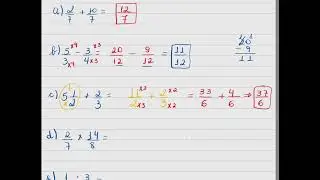 a) 2/7 + 10/7 = 12/7
b) 5/3 ×4/×4 - 3/4 ×3/×3 = 20/12 - 9/12 = 11/12
20 - 9 11
c) 5 1/2 + 2/3 = 11/2 ×3/×3 + 2/3 ×2/×2 = 33/6 + 4/6 ⇒ 37/6
d) 2/7 × 14/8 =